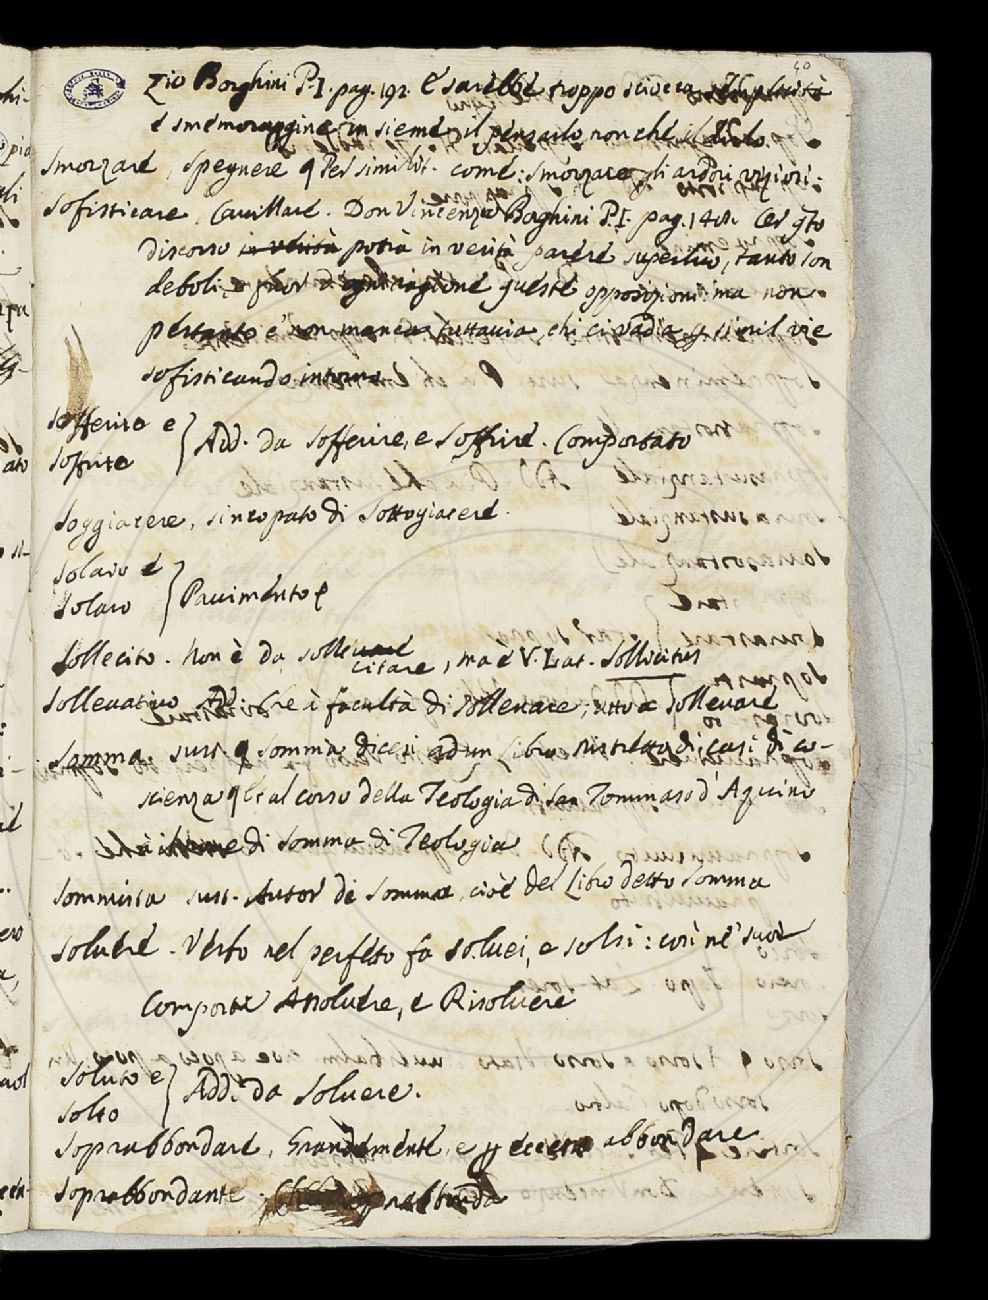 50
zio Borghini P. I. pag. 192. E sarebbe troppo sciocca semplicità
e smemoraggine insieme il pensarlo non che il dirlo.
smorzare, spegnere q Per similit. come: smorzare gli ardori viziosi.
sofisticare, Cavillare. Don Vincenzo Borghini P. I. pag. 148. Cer qto
discorso in verità potrà in verità parere superfluo, tanto son
deboli, e fuor d'ogni ragione queste opposizioni: ma non
pertanto e' non manca tuttavia, chi ci vadia p simil vie
sofisticando intorno
sofferito e
sofferto
Add. da sofferire, e soffrire. Comportato
soggiacere, sincopato di sottogiacere.
solaio e
solaro
Pavimento
sollecito. Non è da solle
citare, ma è V. Lat. Sollicitus
sollevativo Ad. Che à facultà di sollevare, atto a sollevare
somma. sust. q somma dicesi ad un Libro ristretto di casi di co-
scienza q Et al corso della Teologia di San Tommaso d'Aquino
à il nome di somma di Teologia
sommista sust. Autor di somma, cioè del Libro detto somma
solvere. Verbo nel perfetto fa solvei, e solsi: così ne' suoi
Composti Assolvere, e Risolvere
soluto e
solto
Add. da solvere.
soprabbondare, Grandemente, e p eccesso abbondare
soprabbondante, Che soprabbonda